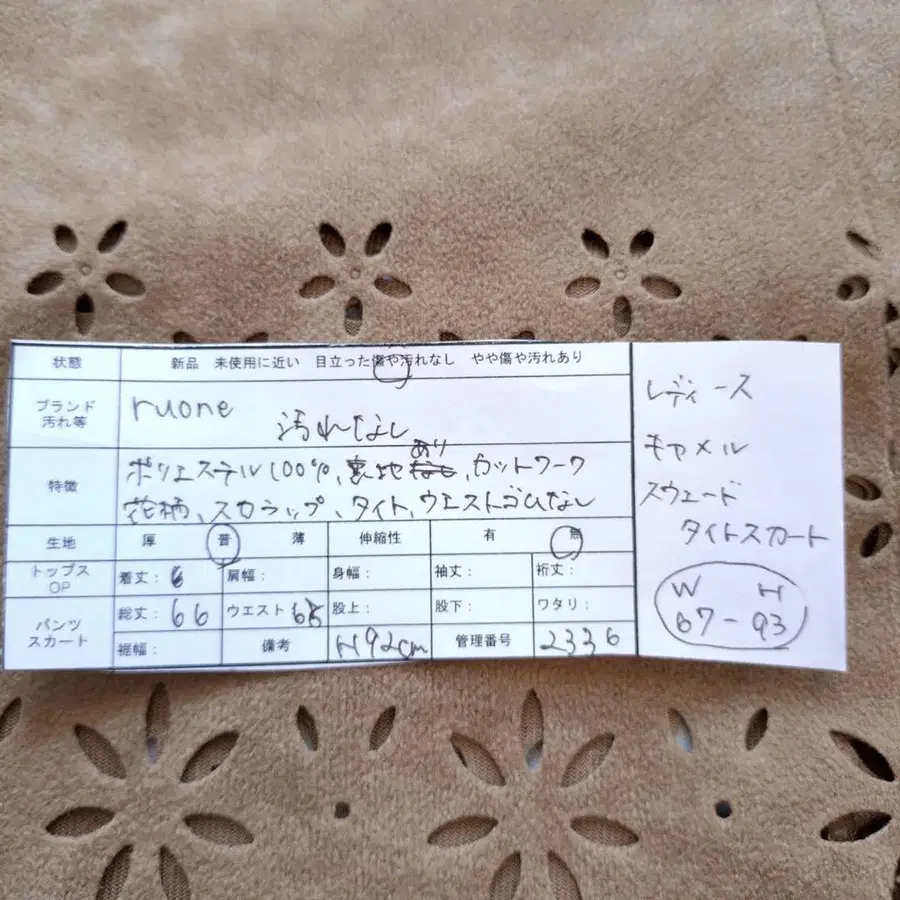 状態 新品 未使用に近い 目立った傷や汚れなし やや傷や汚れあり
ブランド 汚れ等 ruone 汚れなし
あり
特徴 ポリエステル100%、裏地なし、カットワーク
花柄、スカラップ、タイト、ウエストゴムなし
生地 厚 普 薄 伸縮性 有 無
トップス OP 着丈: 肩幅: 身幅: 袖丈: 裄丈:
パンツ スカート 総丈:66 ウエスト 股上: 股下: ワタリ:
裾幅: 備考 H92cm 管理番号 2336
レディース
キャメル
スウェード
タイトスカート
W H
67-93